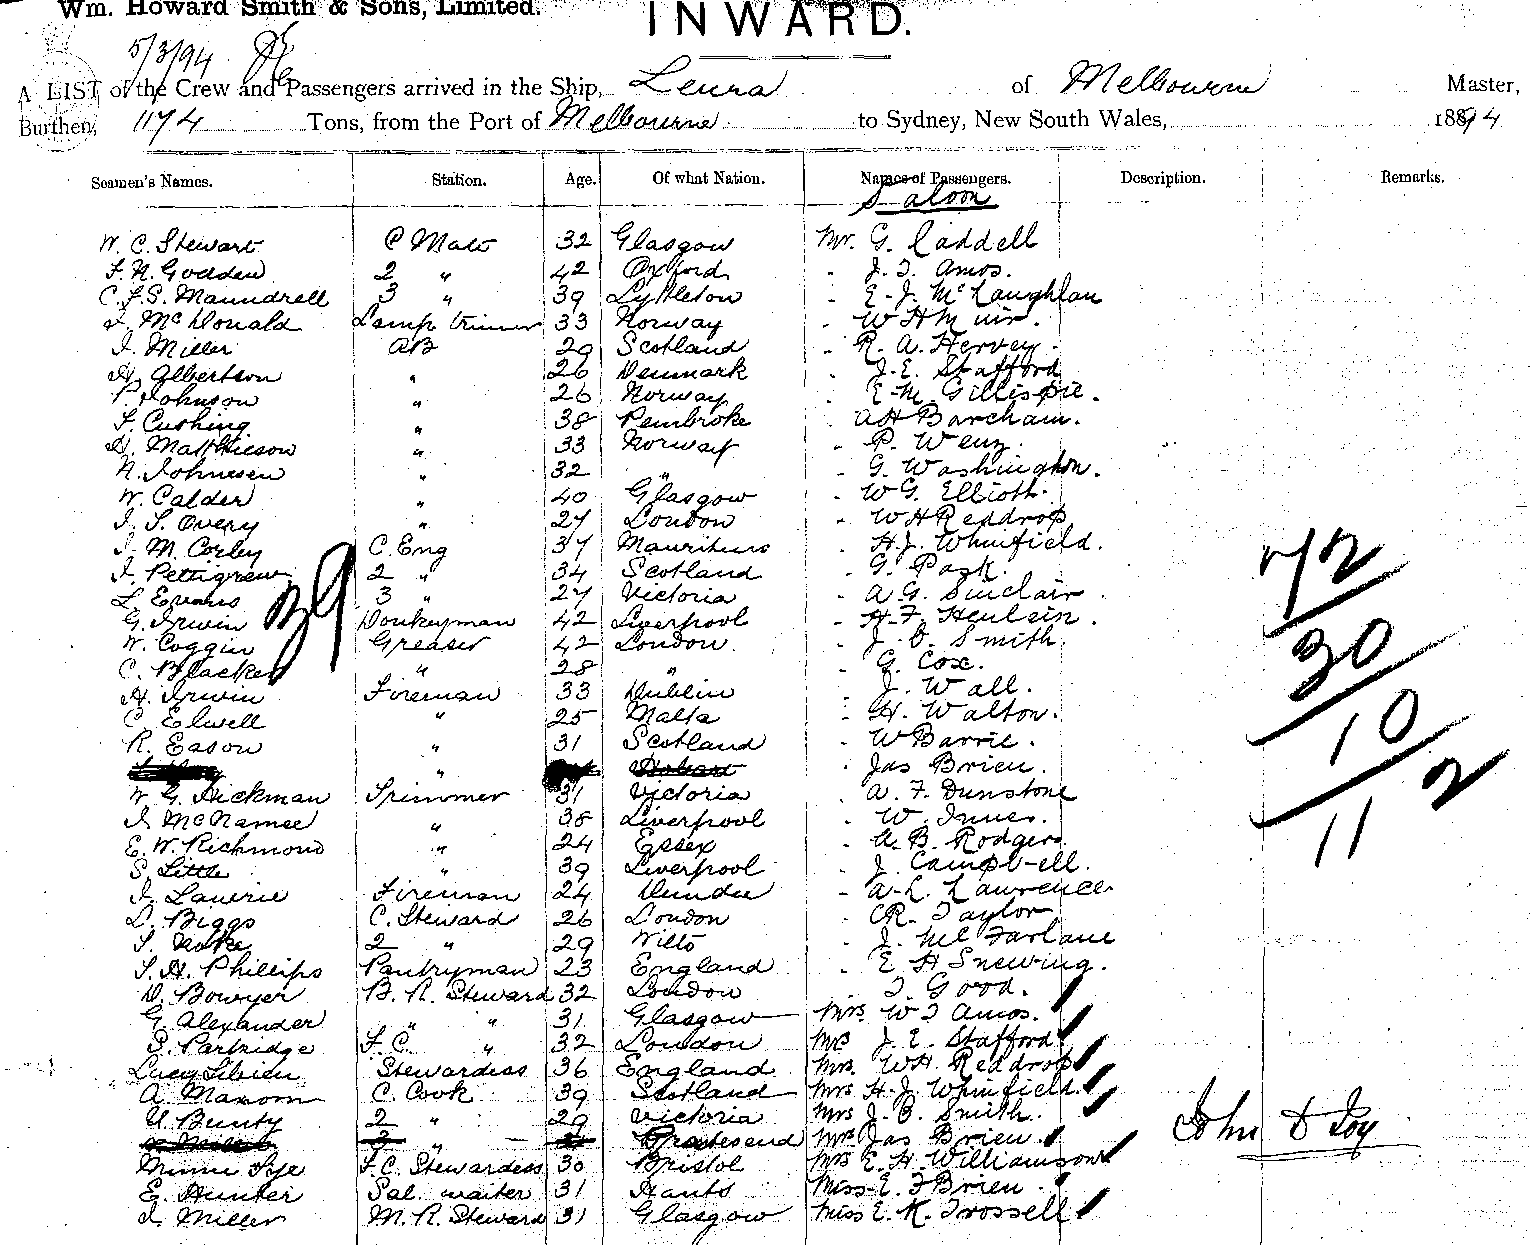 Wm. Howard Smith & Sons, Limited.
INWARD.
5/3/94
A LIST of the Crew and Passengers arrived in the Ship, Leura of Melbourne Master,
Burthen, 1174 Tons, from the Port of Melbourne to Sydney, New South Wales, 1894
Seamen's Names. Station. Age. Of what Nation. Names of Passengers. Description. Remarks.
Saloon
W. C. Stewart C Mate 32 Glasgow Mr. G. Caddell
F. N. Godden 2 " 42 Oxford - J. T. Amos.
C. F. S. Maundrell 3 " 39 Lyttleton - E. J. McLaughlan
J. McDonald Lamp trimmer 33 Norway - W H Muir.
J. Miller AB 29 Scotland - R. A. Hervey.
A. Albertson " 26 Denmark - J. E. Stafford
P. Johnson " 26 Norway - E. M. Gillispie.
F. Cushing " 38 Pembroke A H Barcham.
H. Matthieson " 33 Norway - P. Wenz.
N. Johnesen " 32 " - G. Washington.
W. Calder " 40 Glasgow - W G. Elliott.
J. S. Overy " 27 London - W H Reddrop
J. M. Corley C. Eng 37 Mauritius - H. J. Whinfield.
J. Pettigrew 2 " 34 Scotland - G. Park.
L. Evans 3 " 27 Victoria - A G. Sinclair.
G. Irwin Donkeyman 42 Liverpool - H. F.
W. Coggin Greaser 42 London - J. B. Smith.
C. Blacker " 28 " - G. Cox.
H. Irwin Fireman 33 Dublin - J. Wall.
C. Elwell " 25 Malta - H. Walton.
R. Eason " 31 Scotland - W Barrie.
" Hobart - Jas Brien.
W G. Hickman Trimmer 31 Victoria - A. F. Dunstone
J. McNamee " 38 Liverpool - W. Innes.
E. W. Richmond " 24 Essex - A. B. Rodgers.
S. Little " 39 Liverpool - J. Campbell.
J. Lawrie Fireman 24 Dundee - A. L. Lawrence
L. Biggs C. Steward 26 London - C R. Taylor
S. 2 " 29 Wilts - J. McFarlane
S. H. Phillips Pantryman 23 England - E H Snewing.
D. Bowyer B. R. Steward 32 London - T. Good.
G. Alexander " " 31 Glasgow Mrs. W T Amos.
S. Partridge F. C. " 32 London Mrs J. E. Stafford
Lucy Stewardess 36 England Mrs. W H. Reddrop
A. Maxom C. Cook 39 Scotland Mrs H. J. Whinfield.
U. Bunty 2 " 29 Victoria Mrs J. B. Smith.
3 " Gravesend Mrs Jas Brien.
Minnie Tye F. C. Stewardess 30 Bristol Mrs E. H. Williamson
E. Hunter Sal. waiter 31 Hants Miss E. F Brien.
J. Miller M. R. Steward 31 Glasgow Miss E. K. Trossell
39
72
30
10
11
2